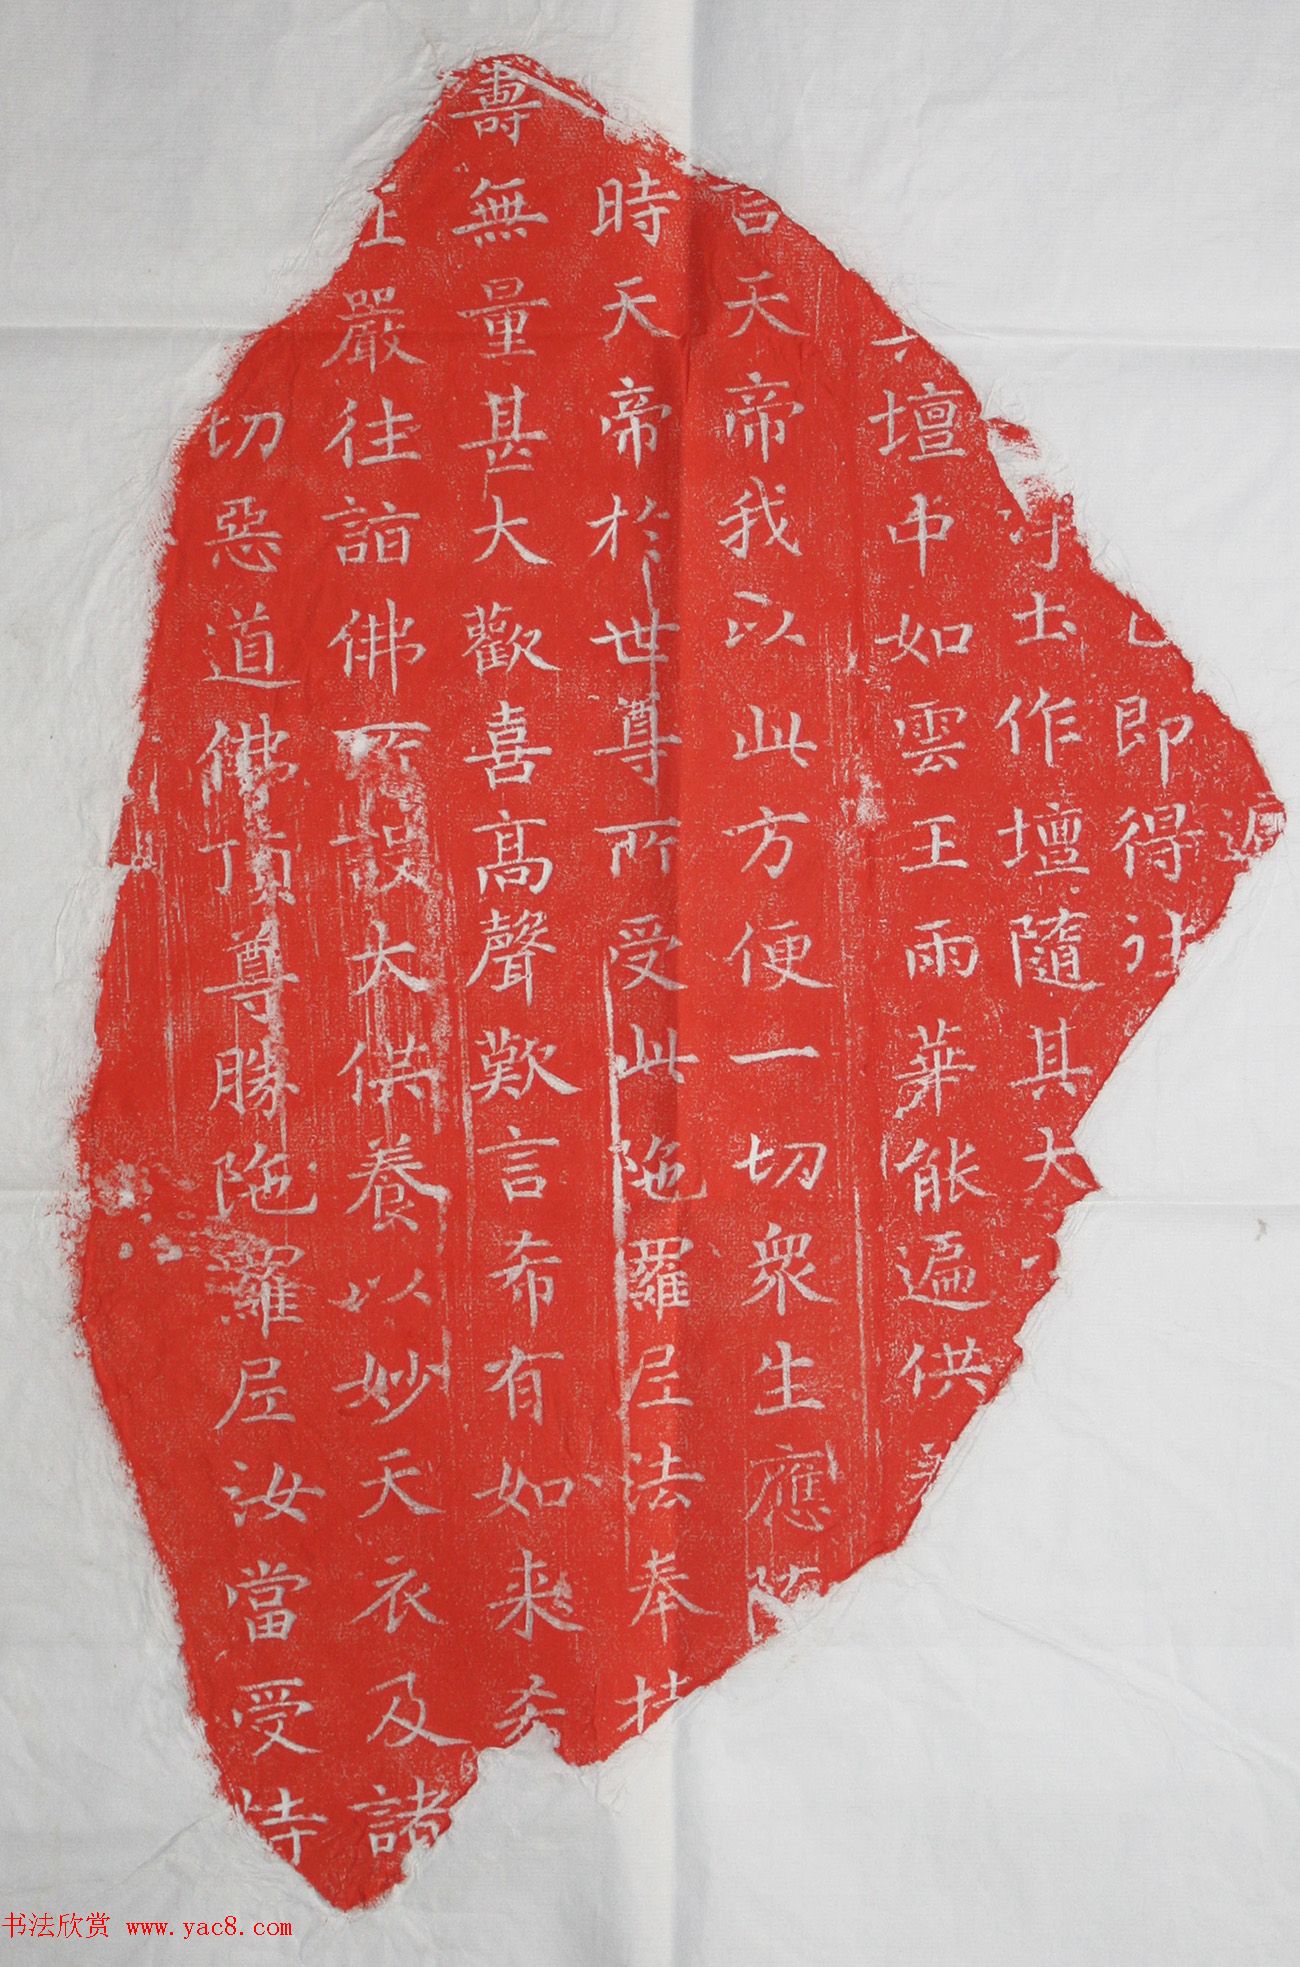 遍
即得
土作壇隨其大
壇中如雲王雨華能遍供
言天帝我以此方便一切衆生應
時天帝於世尊所受此陁羅尼法奉持
壽無量甚大歡喜高聲歎言希有如来希
嚴往詣佛所設大供養以妙天衣及諸
切惡道佛頂尊勝陁羅尼汝當受持
书法欣赏 www.yac8.com